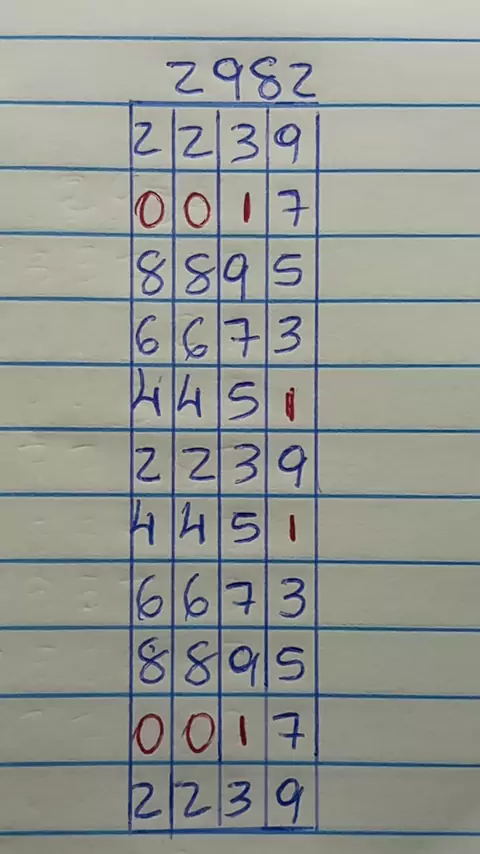 2982
2 2 3 9
0 0 1 7
8 8 9 5
6 6 7 3
4 4 5 1
2 2 3 9
4 4 5 1
6 6 7 3
8 8 9 5
0 0 1 7
2 2 3 9